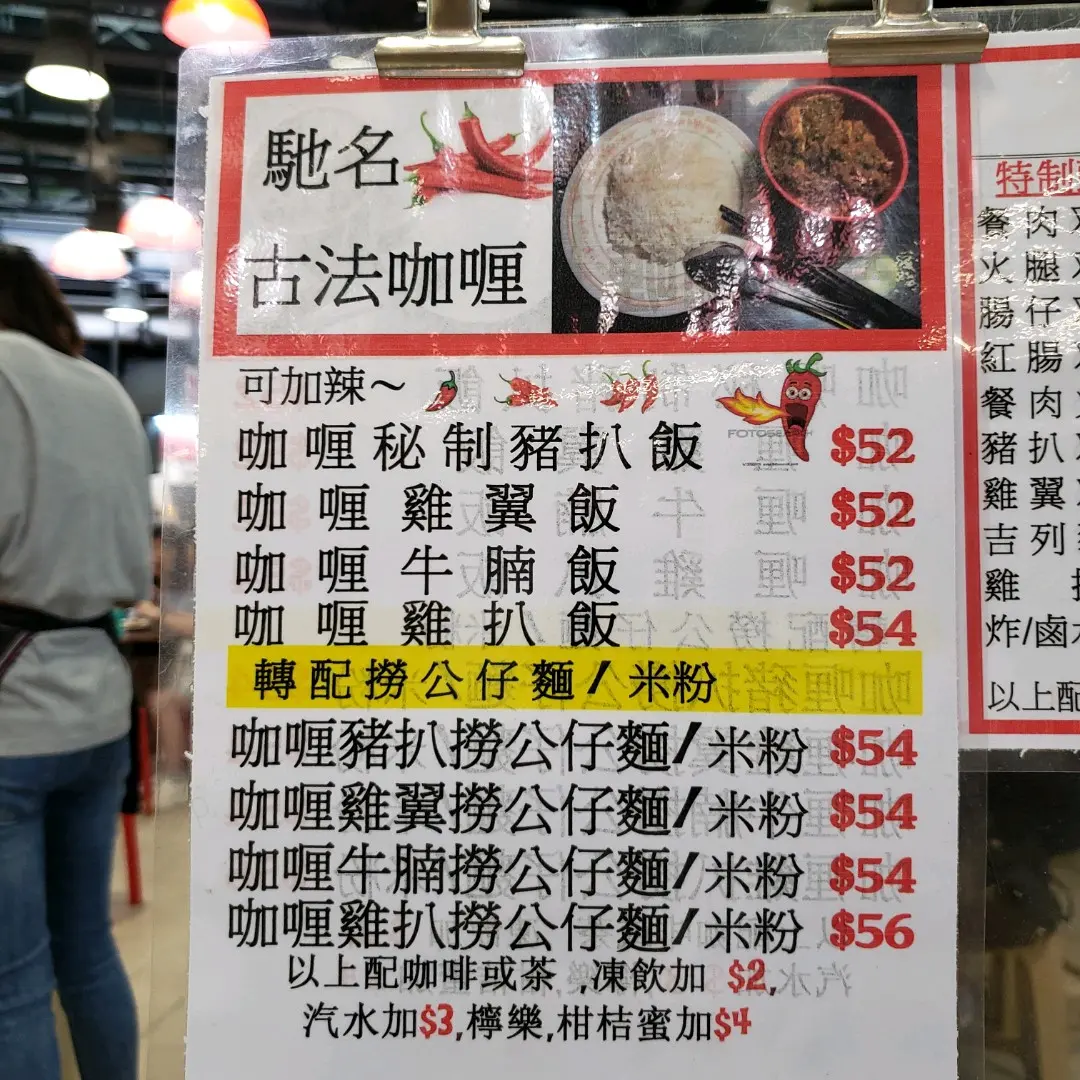 馳名
古法咖喱
可加辣~
FOTOSEARCH
咖喱秘制豬扒飯 $52
咖喱雞翼飯 $52
咖喱牛腩飯 $52
咖喱雞扒飯 $54
轉配撈公仔麵/米粉
咖喱豬扒撈公仔麵/米粉 $54
咖喱雞翼撈公仔麵/米粉 $54
咖喱牛腩撈公仔麵/米粉 $54
咖喱雞扒撈公仔麵/米粉 $56
以上配咖啡或茶,凍飲加 $2,
汽水加$3,檸樂,柑桔蜜加$4
特制
餐肉
火腿
腸仔
紅腸
餐肉
豬扒
雞翼
吉列
雞
炸/鹵
以上配